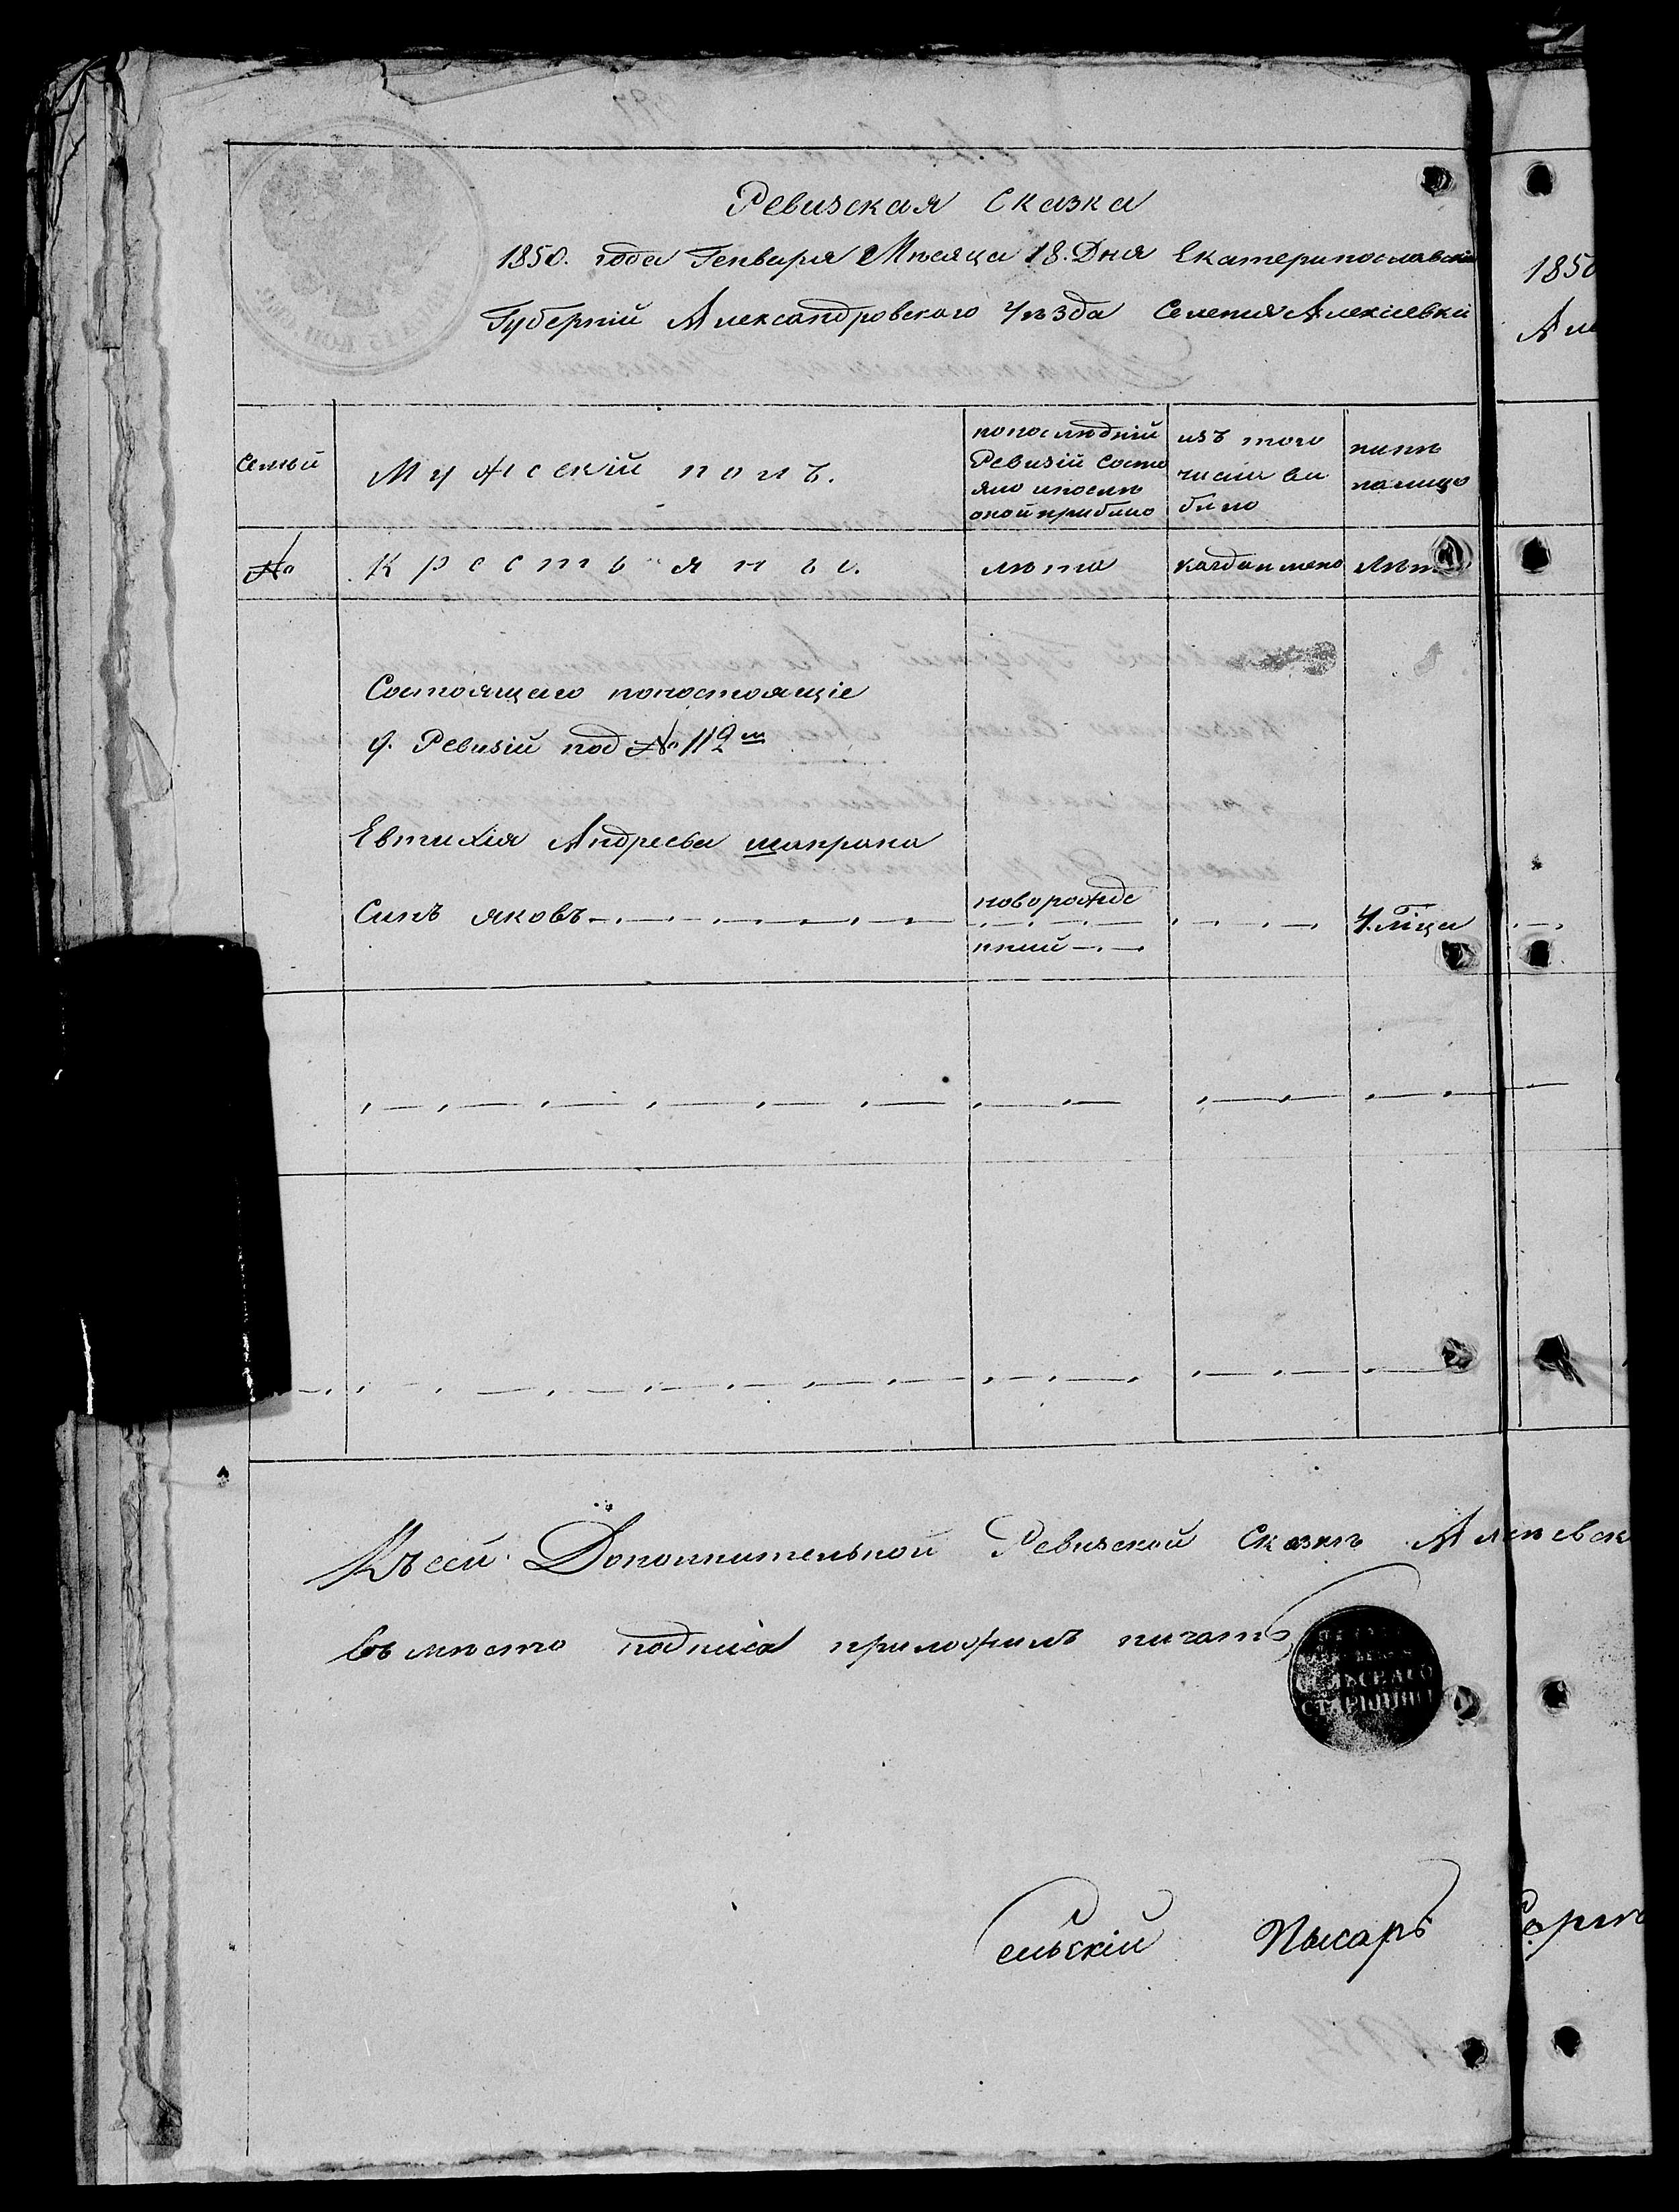 Ревизская Сказка
1850. года Генваря Месяца 18. Дня Екатеринославской 1850
Губерніи Александровскаго Уѣзда Селения Алексіевки Але
Семьи Мужескій полъ. попоследній Ревизіи состо яло ипосле оной прибыло изъ того числа вы было ныне налицо
№ Крестьяны. лета когдаименно лет
Состоящего понастоящіе
9. Ревизіи под № 112м
Евтихія Андреева шапрана
Синъ яковъ новорожде нный 4. мца
Къ сей Дополнительной Ревизской Сказке
Въместо подписа приложилъ печать
СЕЛЬСКАГО
СТАРШИНЫ
Сельскій Писарь